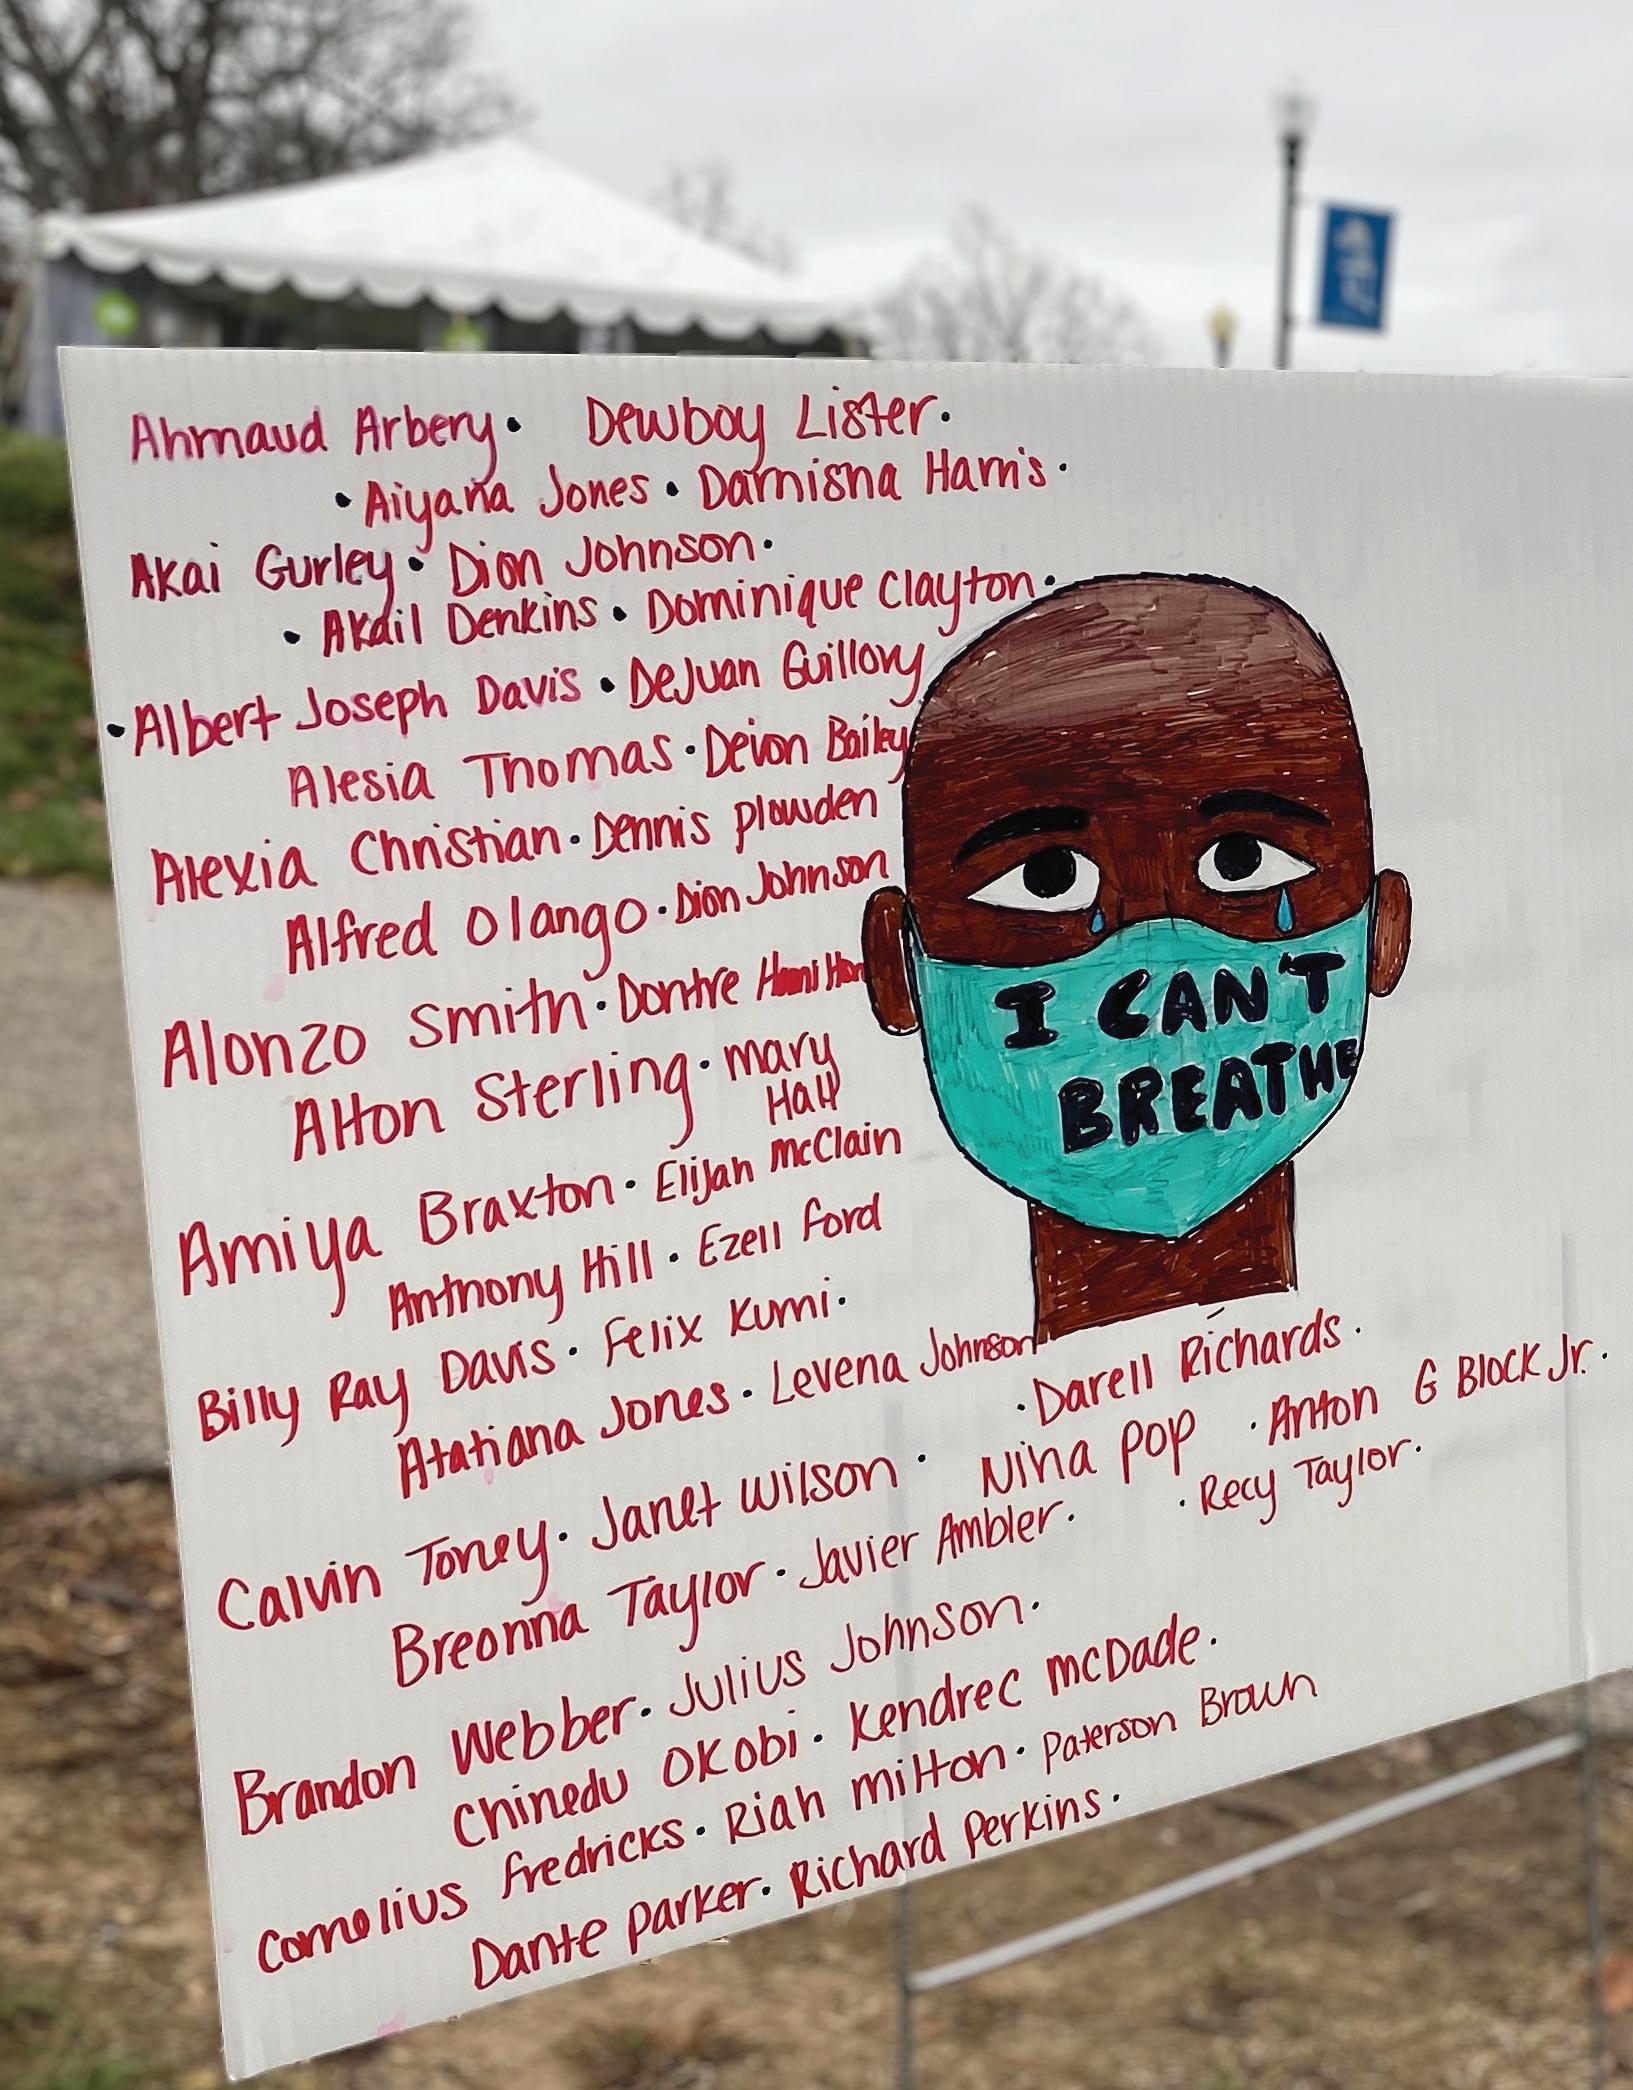 Ahmaud Arbery. Dewboy Lister.
• Aiyana Jones • Darnisha Harris •
Akai Gurley • Dion Johnson •
• Akail Denkins • Dominique Clayton •
• Albert Joseph Davis • DeJuan Guillory
Alesia Thomas • Devon Bailey
Alexia Christian • Dennis Plowden
Alfred Olango • Dion Johnson
Alonzo Smith • Dontre Hamilton
Alton Sterling • Mary
Hall
Amiya Braxton • Elijah McClain
Anthony Hill • Ezell Ford
Billy Ray Davis • Felix Kumi •
Atatiana Jones • Levena Johnson
• Darell Richards •
Calvin Toney • Janet Wilson • Nina Pop • Anton G Block Jr. •
Breonna Taylor • Javier Ambler • • Recy Taylor •
Brandon Webber • Julius Johnson •
Chinedu Okobi • Kendrec McDade •
Cornelius Fredricks • Riah Milton • Paterson Brown
Dante Parker • Richard Perkins •
I CAN'T
BREATHE